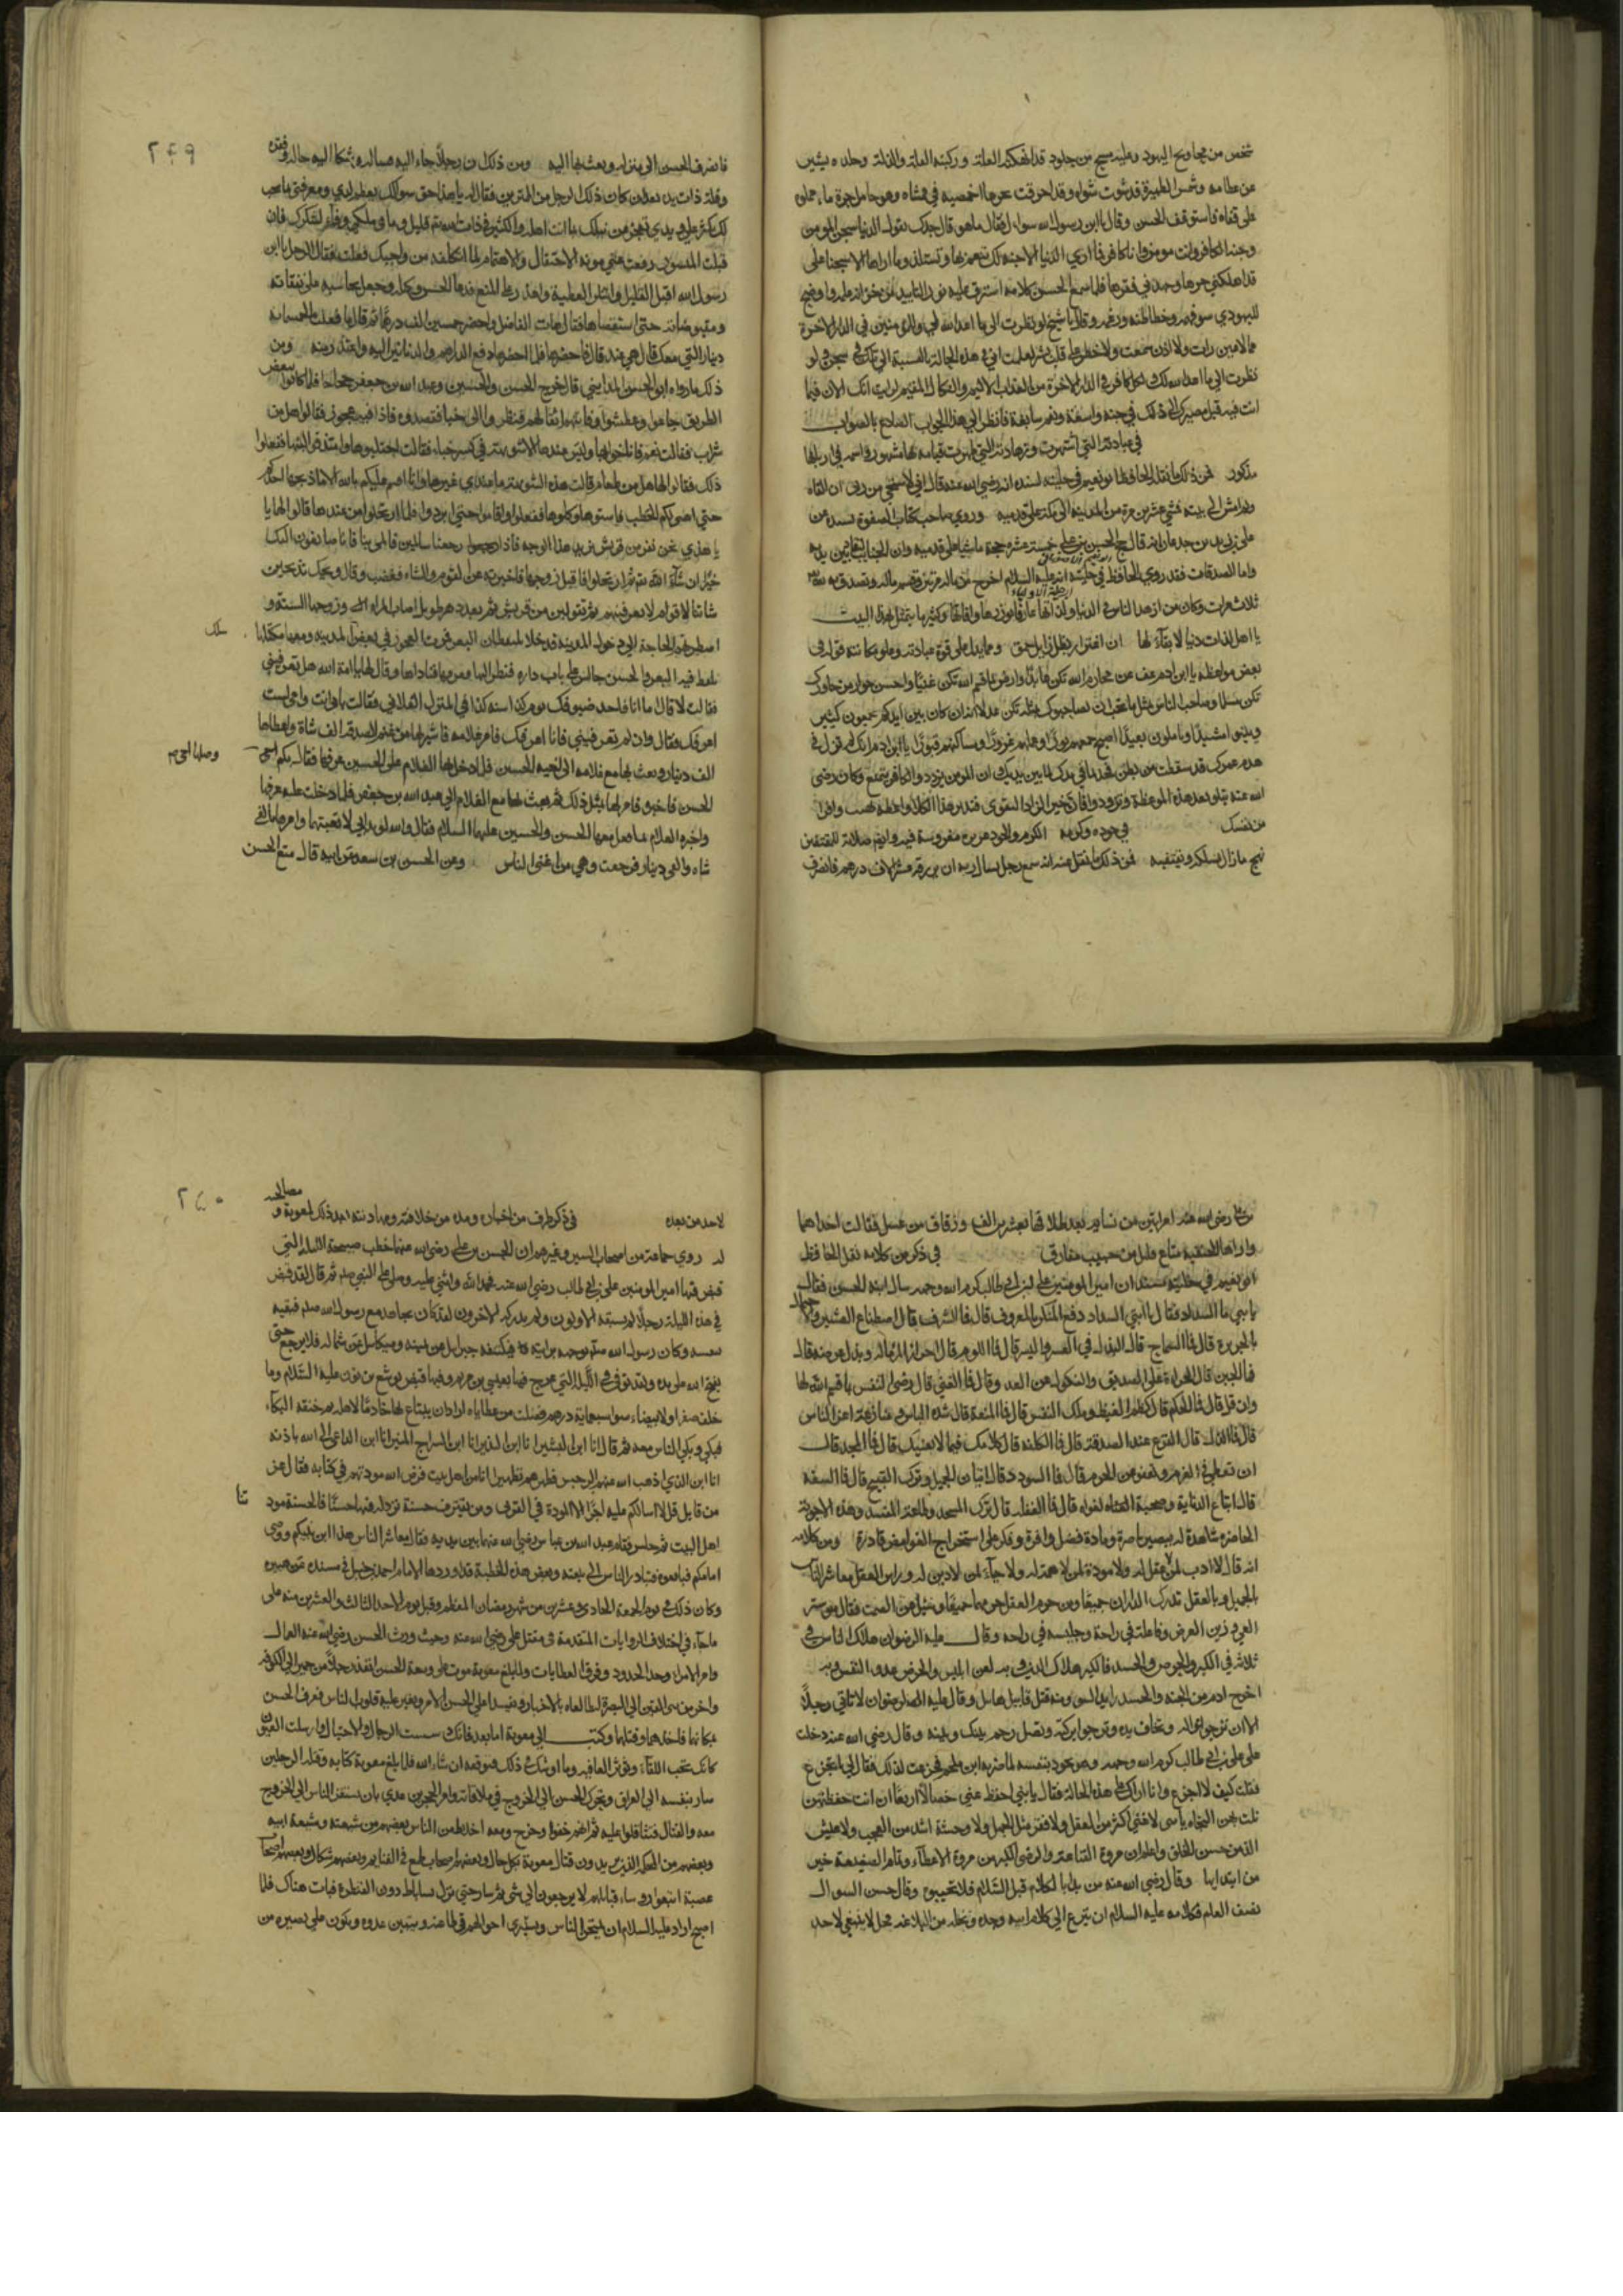 شخص من محاويج اليهود وعليه مسح من جلود قد انهكته العلة وركبته القلة والذلة وجلده يستر
عظامه وشمس الظهيرة قد شوت شواه وقد احرقت حرها اخمصيه في ممشاه وهو حامل جرة ماء مملوة
على قفاه فاستوقف الحسن وقال يا ابن رسول الله سؤال فقال ما هو قال جدك يقول الدنيا سجن المومن
وجنة الكافر وانت مومن وانا كافر فما اري الدنيا الا جنة لك تتنعم بها وتستلذ وما اراها الا سجنا علي
قد اهلكني حرها واجهدني فقرها فلما سمع الحسن كلامه اشرق عليه نور التاييد من خزانة علمه واوضح
لليهودي سوء فهمه وخطا ظنه وزعمه وقال يا شيخ لو نظرت الى ما اعد الله لي وللمومنين في الدار الاخرة
مما لا عين رات ولا اذن سمعت ولا خطر على قلب بشر لعلمت اني في هذه الحالة بالنسبة الى تلك في سجن ولو
نظرت الى ما اعد الله لك ولكل كافر في الدار الاخرة من العذاب الاليم والنكال المقيم لرايت انك الان فيما
انت فيه قبل مصيرك الى ذلك في جنة واسعة ونعم سابغة فانظر الى هذا الجواب الصادع بالصواب
في عبادته التي اشتهرت وزهادته التي ظهرت قيامه بها مشهور واسمه في اربابها
مذكور فمن ذلك ما نقله الحافظ ابو نعيم في حليته بسنده انه رضي الله عنه قال اني لاستحي من ربي ان القاه
ولم امش الى بيته فمشى عشرين مرة من المدينة الى مكة على قدميه وروي صاحب كتاب الصفوة بسنده عن
علي بن زيد بن جدعان انه قال حج الحسن بن علي خمس عشرة حجة ماشيا على قدميه وان الجنايب لتقاد بين يديه
واما الصدقات فقد روي الحافظ في حليته انه عليه السلام اخرج من ماله مرتين وقسم ماله وتصدق به لله
ثلاث مرات وكان من ازهد الناس في الدنيا ولذاتها عارفا بغرورها وافاتها وكثيرا ما يتمثل بهذا البيت
يا اهل لذات دنيا لا بقاء لها ان اغترارا بظل زايل حمق ومما يدل على قوة عبادته وعلو مكانته قوله في
بعض مواعظه يا ابن ادم عف عن محارم الله تكن عابدا وارض بما قسم الله تكن غنيا واحسن جوار من جاورك
تكن مسلما وصاحب الناس بمثل ما تحب ان يصاحبوك بمثله تكن عدلا انه كان بين ايديكم جمعون كثيرا
ويبنون مشيدا وياملون بعيدا اصبح جمعهم بورا وعملهم غرورا ومساكنهم قبورا يا ابن ادم انك لم تزل في
هدم عمرك قد سقطت من بطن امك فخذ بما في يدك لما بين يديك فان المومن يتزود والكافر يتمتع وكان رضي
الله عنه يتلو بعد هذه الموعظة وتزودوا فان خير الزاد التقوى فتدبر هذا الكلام واعطه نصيبا وافرا
من نفسك في جوده وكرمه الكرم والجود غريزة مغروسة فيه وايصال صلاته للمعتفين
نهج ما زال يسلكه ويقتفيه فمن ذلك ما نقل عنه انه سمع رجلا يسال ربه ان يرزقه عشرة الاف درهم فانصرف
٢٤٩
فانصرف الحسن الى منزله وبعث بها اليه ومن ذلك ان رجلا جاء اليه وساله وشكا اليه حاله وفقره
وقلة ذات يده بعد ان كان ذلك الرجل من المترين فقال له يا هذا حق سوالك يعظم لدي ومعرفتي بما يجب
لك تكبر علي ويدي تعجز عن نيلك بما انت اهله والكثير في ذات الله تعالى قليل وما في ملكي وفاء لشكرك فان
قبلت الميسور ورفعت عني مؤنة الاحتفال والاهتمام لما اتكلفه من واجبك فعلت فقال الرجل يا ابن
رسول الله اقبل القليل واشكر العطية واعذر على المنع فدعا الحسن وكيله وجعل يحاسبه على نفقاته
ومقبوضاته حتى استقصاها فقال هات الفاضل فاحضر خمسين الف درهم ثم قال ما فعلت الخمسمائة
دينار التي معك قال هي عندي قال فاحضرها فلما احضرها دفع الدراهم والدنانير اليه واعتذر منه ومن
ذلك ما رواه ابو الحسن المدايني قال خرج الحسن والحسين وعبد الله بن جعفر حجاجا فلما كانوا ببعض
الطريق جاعوا وعطشوا وقد فاتتهم اثقالهم فنظروا الى خباء فقصدوه فاذا فيه عجوز فقالوا هل من
شراب فقالت نعم فاناخوا بها وليس عندها الا شويهة في كسر خباء فقالت احتلبوها وامتذقوا لبنها ففعلوا
ذلك فقالوا لها هل من طعام قالت هذه الشويهة ما عندي غيرها وانا اقسم عليكم بالله الا ما ذبحها احدكم
حتى اهيئ لكم الحطب فاشووها وكلوها ففعلوا واقاموا حتى ابردوا فلما ارتحلوا من عندها قالوا لها يا
هذي نحن نفر من قريش نريد هذا الوجه فاذا رجعنا سالمين فالمي بنا فانا صانعون اليك
خيرا ان شاء الله ثم ارتحلوا فاقبل زوجها فاخبرته عن القوم والشاة فغضب وقال ويحك تذبحين
شاتنا لاقوام لا نعرفهم ثم تقولين نفر من قريش ثم بعد دهر طويل اصاب المراة وزوجها السنة و
اضطرتهم الحاجة الى دخول المدينة فدخلا يلتقطان البعر فمرت العجوز في بعض سكك المدينة ومعها مكتلها
تلتقط فيه البعر والحسن جالس على باب داره فنظر اليها فعرفها فناداها وقال لها يا امة الله هل تعرفيني
فقالت لا قال انا احد ضيوفك يوم كذا سنة كذا في المنزل الفلاني فقالت بابي انت وامي لست
اعرفك فقال وان لم تعرفيني فانا اعرفك فامر غلامه فاشترى لها من غنم الصدقة الف شاة واعطاها
الف دينار وبعث بها مع غلامه الى اخيه الحسين فلما دخل بها الغلام على الحسين عرفها فقال بكم وصلها اخي
الحسن فاخبره فامر لها بمثل ذلك ثم بعث بها مع الغلام الى عبد الله بن جعفر فلما دخلت عليه عرفها
واخبره الغلام بما فعل معها الحسن والحسين عليهما السلام فقال والله لو بداتي لاتعبتهما وامر لها بالفي
شاة والفي دينار فرجعت وهي من اغنى الناس وعن الحسن بن سعد عن ابيه قال متع الحسن
بن علي رضي الله عنه امراتين من نسايه بعد طلاقهما بعشرين الفا وزقاق من عسل فقالت احداهما
واراها الحنفية متاع قليل من حبيب مفارق في ذكر من كلامه نقل الحافظ
ابو نعيم في حليته بسنده ان امير المومنين علي بن ابي طالب كرم الله وجهه سال ابنه الحسن فقال
يا بني ما السداد فقال يا ابتي السداد دفع المنكر بالمعروف قال فما الشرف قال اصطناع العشيرة وحمل
الجريرة قال فما السماح قال البذل في العسر واليسر قال فما اللوم قال احراز المرء ماله وبذله عرضه قال
فما الجبن قال الجراة على الصديق والنكول عن العدو قال فما الغنى قال رضى النفس بما قسم الله لها
وان قل قال فما الحلم قال كظم الغيظ وملك النفس قال فما المنعة قال شدة الباس ومنازعة اعز الناس
قال فما الذل قال الفزع عند الصدقة قال فما الكلفة قال كلامك فيما لا يعنيك قال فما المجد قال
ان تعطي في الغرم وتعفو عن الجرم قال فما السودد قال اتيان الجميل وترك القبيح قال فما السفه
قال اتباع الدناية وصحبة الغواة قال فما الغفلة قال ترك المسجد وطاعة المفسد وهذه الاجوبة
الحاضرة شاهدة له ببصيرة باصرة ومادة فضل وافرة وفكرة على استخراج الغوامض قادرة ومن كلامه
انه قال لا ادب لمن لا عقل له ولا مودة لمن لا همة له ولا حياء لمن لا دين له وراس العقل معاشرة الناس
بالجميل وبالعقل تدرك الداران جميعا ومن حرم العقل حرمهما جميعا وسئل عن الصمت فقال هو ستر
العي وزين العرض وفاعله في راحة وجليسه في راحة وقال عليه الرضوان هلاك الناس في
ثلاث في الكبر والحرص والحسد فالكبر هلاك الدين وبه لعن ابليس والحرص عدو النفس وبه
اخرج ادم من الجنة والحسد رايد السوء ومنه قتل قابيل هابيل وقال عليه الرضوان لا تاتي رجلا
الا ان ترجو نواله وتخاف يده وترجو بركته وتصل رحم بينك وبينه وقال رضي الله عنه دخلت
على علي بن ابي طالب كرم الله وجهه وهو يجود بنفسه لما ضربه ابن ملجم فجزعت لذلك فقال لي اتجزع
فقلت كيف لا اجزع وانا اراك على هذه الحالة فقال يا بني احفظ عني خصالا اربعا ان انت حفظتهن
نلت بهن النجاة يا بني لا غنى اكثر من العقل ولا فقر مثل الجهل ولا وحشة اشد من العجب ولا عيش
الذ من حسن الخلق واعلم ان مروة القناعة والرضى اكبر من مروة الاعطاء وتمام الصنيعة خير
من ابتدايها وقال رضي الله عنه من بدا بالكلام قبل السلام فلا تجيبوه وقال حسن السوال
نصف العلم فكلامه عليه السلام ان ينزع الى كلام ابيه وجده ومحله من البلاغة محل لا ينبغي لاحد
٢٥٠
لاحد من بعده في ذكر طرف من اخباره ومدة من خلافته ومهادنته بعد ذلك لمعوية و مصالحته
له روي جماعة من اصحاب السير وغيرهم ان الحسن بن علي رضي الله عنهما خطب صبيحة الليلة التي
قبض فيها امير المومنين علي بن ابي طالب رضي الله عنه فحمد الله واثنى عليه وصلى على النبي صلعم ثم قال لقد قبض
في هذه الليلة رجل لم يسبقه الاولون ولم يدركه الاخرون لقد كان يجاهد مع رسول الله صلعم فيقيه
بنفسه وكان رسول الله صلعم يوجهه برايته فيكتنفه جبرايل عن يمينه وميكايل عن شماله فلا يرجع حتى
يفتح الله على يده ولقد توفي في الليلة التي عرج فيها بعيسى بن مريم وفيها قبض يوشع بن نون عليه السلام وما
خلف صفراء ولا بيضاء سوا سبعماية درهم فضلت من عطاياه اراد ان يبتاع بها خادما لاهله ثم خنقه البكاء
فبكى وبكى الناس معه ثم قال انا ابن البشير انا ابن النذير انا ابن السراج المنير انا ابن الداعي الى الله باذنه
انا ابن الذي اذهب الله عنهم الرجس وطهرهم تطهيرا انا من اهل بيت فرض الله مودتهم في كتابه فقال عز
من قايل قل لا اسالكم عليه اجرا الا المودة في القربى ومن يقترف حسنة نزد له فيها حسنا فالحسنة مودتنا
اهل البيت ثم جلس فقام عبد الله بن عباس رضي الله عنهما بين يديه فقال يا معاشر الناس هذا ابن نبيكم ووصي
امامكم فبايعوه فتبادر الناس الى بيعته وبعض هذه الخطبة قد اوردها الامام احمد بن حنبل في مسنده عن هبيرة
وكان ذلك في يوم الجمعة الحادي وعشرين من شهر رمضان المعظم وقيل يوم الاحد الثالث والعشرين منه على
ما جاء في اختلاف الروايات المتقدمة في مقتل علي رضي الله عنه وحيث ورث الحسن رضي الله عنه العمال
وامر الامراء وحد الحدود وفرق العطايات ولما بلغ معوية موت علي وبيعة الحسن انفذ رجلا من حمير الى الكوفة
واخر من بني القين الى البصرة ليطالعاه بالاخبار ويفسدا على الحسن الامر ويغير عليه قلوب الناس فعرف الحسن
بمكانهما فاخذهما وقتلهما وكتب الى معوية اما بعد فانك دسست الرجال والاحتيال وارسلت العيون
كانك تحب اللقاء وتوثر العافية وما اوشك ذلك فتوقعه ان شاء الله فلما بلغ معوية كتابه وقتله الرجلين
سار بنفسه الى العراق وتحرك الحسن الى الخروج في ملاقاته وامر حجر بن عدي بان يستنفر الناس الى الخروج
معه والقتال فتثاقلوا عليه ثم انهم خفوا وخرج ومعه اخلاط من الناس بعضهم من شيعته وشيعة ابيه
وبعضهم من المحكمة الذين يريدون قتال معوية بكل حال وبعضهم اصحاب طمع في الغنايم وبعضهم شكاك وبعضهم اصحاب
عصبة اتبعوا روساء قبايلهم لا يرجعون الى شي ثم سار حتى نزل ساباط دون القنطرة فبات هناك فلما
اصبح اراد عليه السلام ان يمتحن الناس ويستبري احوالهم في طاعته ويتبين عدوه ويكون على بصيرة من